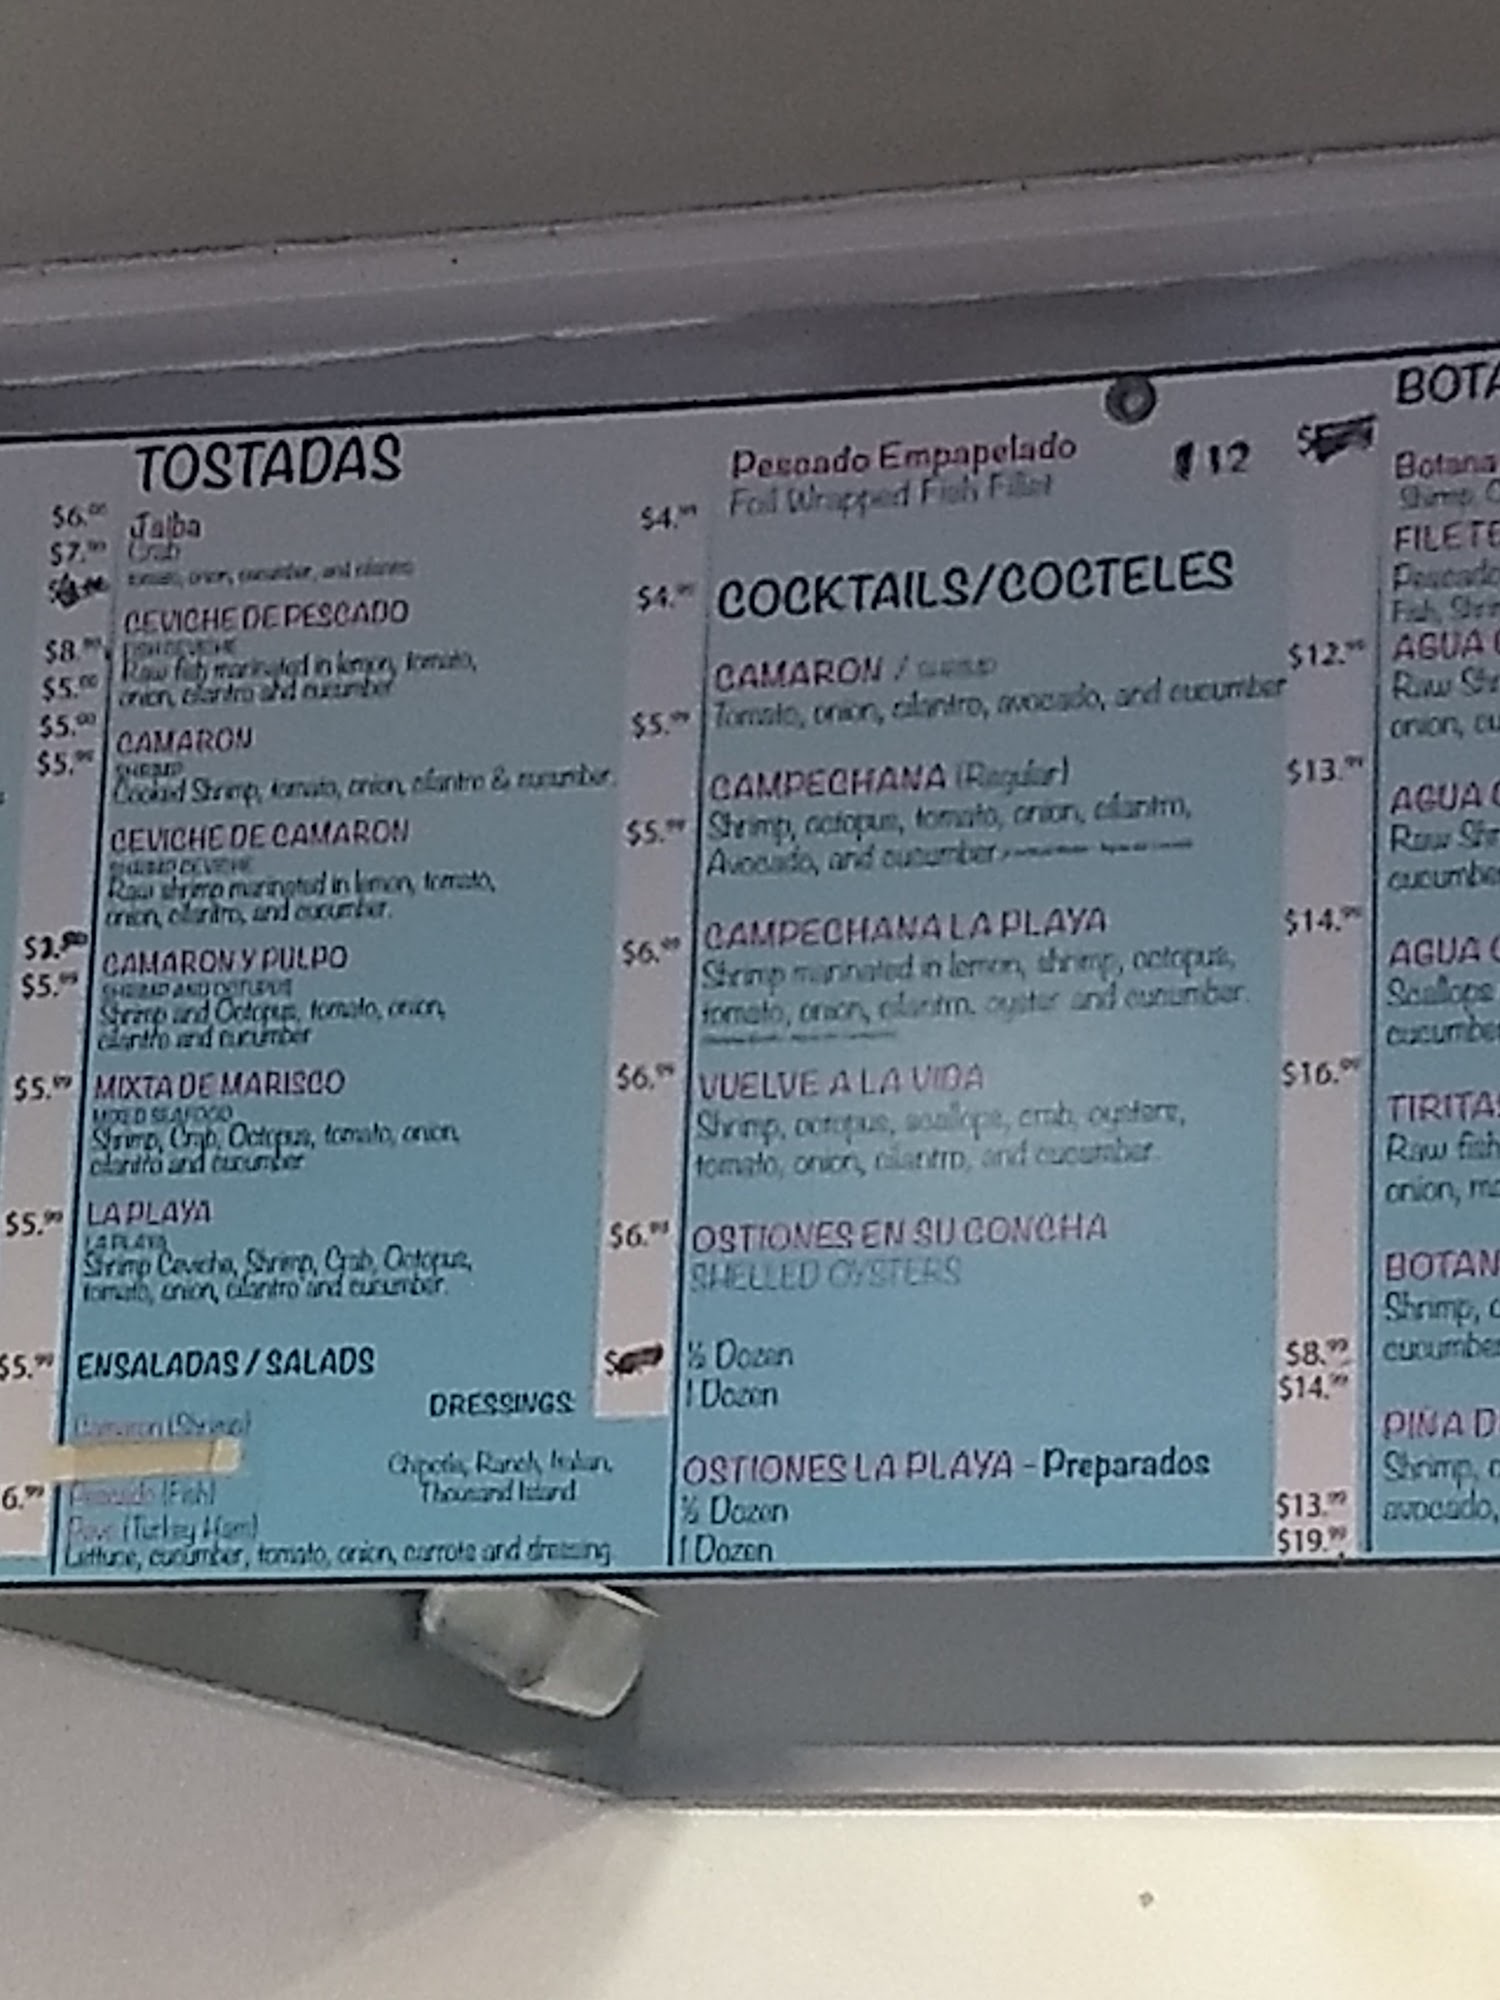 $6.00
$7.99
$8.99
$5.00
$5.00
$5.99
$5.99
$5.99
$5.99
$5.99
6.99
TOSTADAS
Jaiba $4.99
Crab
tomato, onion, cucumber, and cilantro
CEVICHE DE PESCADO $4.99
FISH CEVICHE
Raw fish marinated in lemon, tomato,
onion, cilantro and cucumber
CAMARON $5.99
SHRIMP
Cooked Shrimp, tomato, onion, cilantro & cucumber.
CEVICHE DE CAMARON $5.99
SHRIMP CEVICHE
Raw shrimp marinated in lemon, tomato,
onion, cilantro, and cucumber.
CAMARON Y PULPO $6.99
SHRIMP AND OCTOPUS
Shrimp and Octopus, tomato, onion,
cilantro and cucumber
MIXTA DE MARISCO $6.99
MIXED SEAFOOD
Shrimp, Crab, Octopus, tomato, onion,
cilantro and cucumber
LA PLAYA $6.99
LA PLAYA
Shrimp Ceviche, Shrimp, Crab, Octopus,
tomato, onion, cilantro and cucumber.
ENSALADAS / SALADS
DRESSINGS:
Camaron (Shrimp)
Chipotle, Ranch, Italian,
Thousand Island
Pescado (Fish)
Pavo (Turkey Ham)
Lettuce, cucumber, tomato, onion, carrots and dressing.
Pescado Empapelado $12
Foil Wrapped Fish Fillet
COCKTAILS/COCTELES
CAMARON / SHRIMP $12.99
Tomato, onion, cilantro, avocado, and cucumber
CAMPECHANA (Regular) $13.99
Shrimp, octopus, tomato, onion, cilantro,
Avocado, and cucumber
CAMPECHANA LA PLAYA $14.99
Shrimp marinated in lemon, shrimp, octopus,
tomato, onion, cilantro, oyster and cucumber.
VUELVE A LA VIDA $16.99
Shrimp, octopus, scallops, crab, oysters,
tomato, onion, cilantro, and cucumber.
OSTIONES EN SU CONCHA
SHELLED OYSTERS
½ Dozen $8.99
1 Dozen $14.99
OSTIONES LA PLAYA - Preparados
½ Dozen $13.99
1 Dozen $19.99
BOTA
Botana
Shrimp, O
FILETE
Pescado
Fish, Shrim
AGUA C
Raw Shr
onion, cu
AGUA C
Raw Shr
cucumbe
AGUA C
Scallops
cucumbe
TIRITAS
Raw fish
onion, ma
BOTAN
Shrimp, o
cucumbe
PIÑA D
Shrimp, o
avocado,